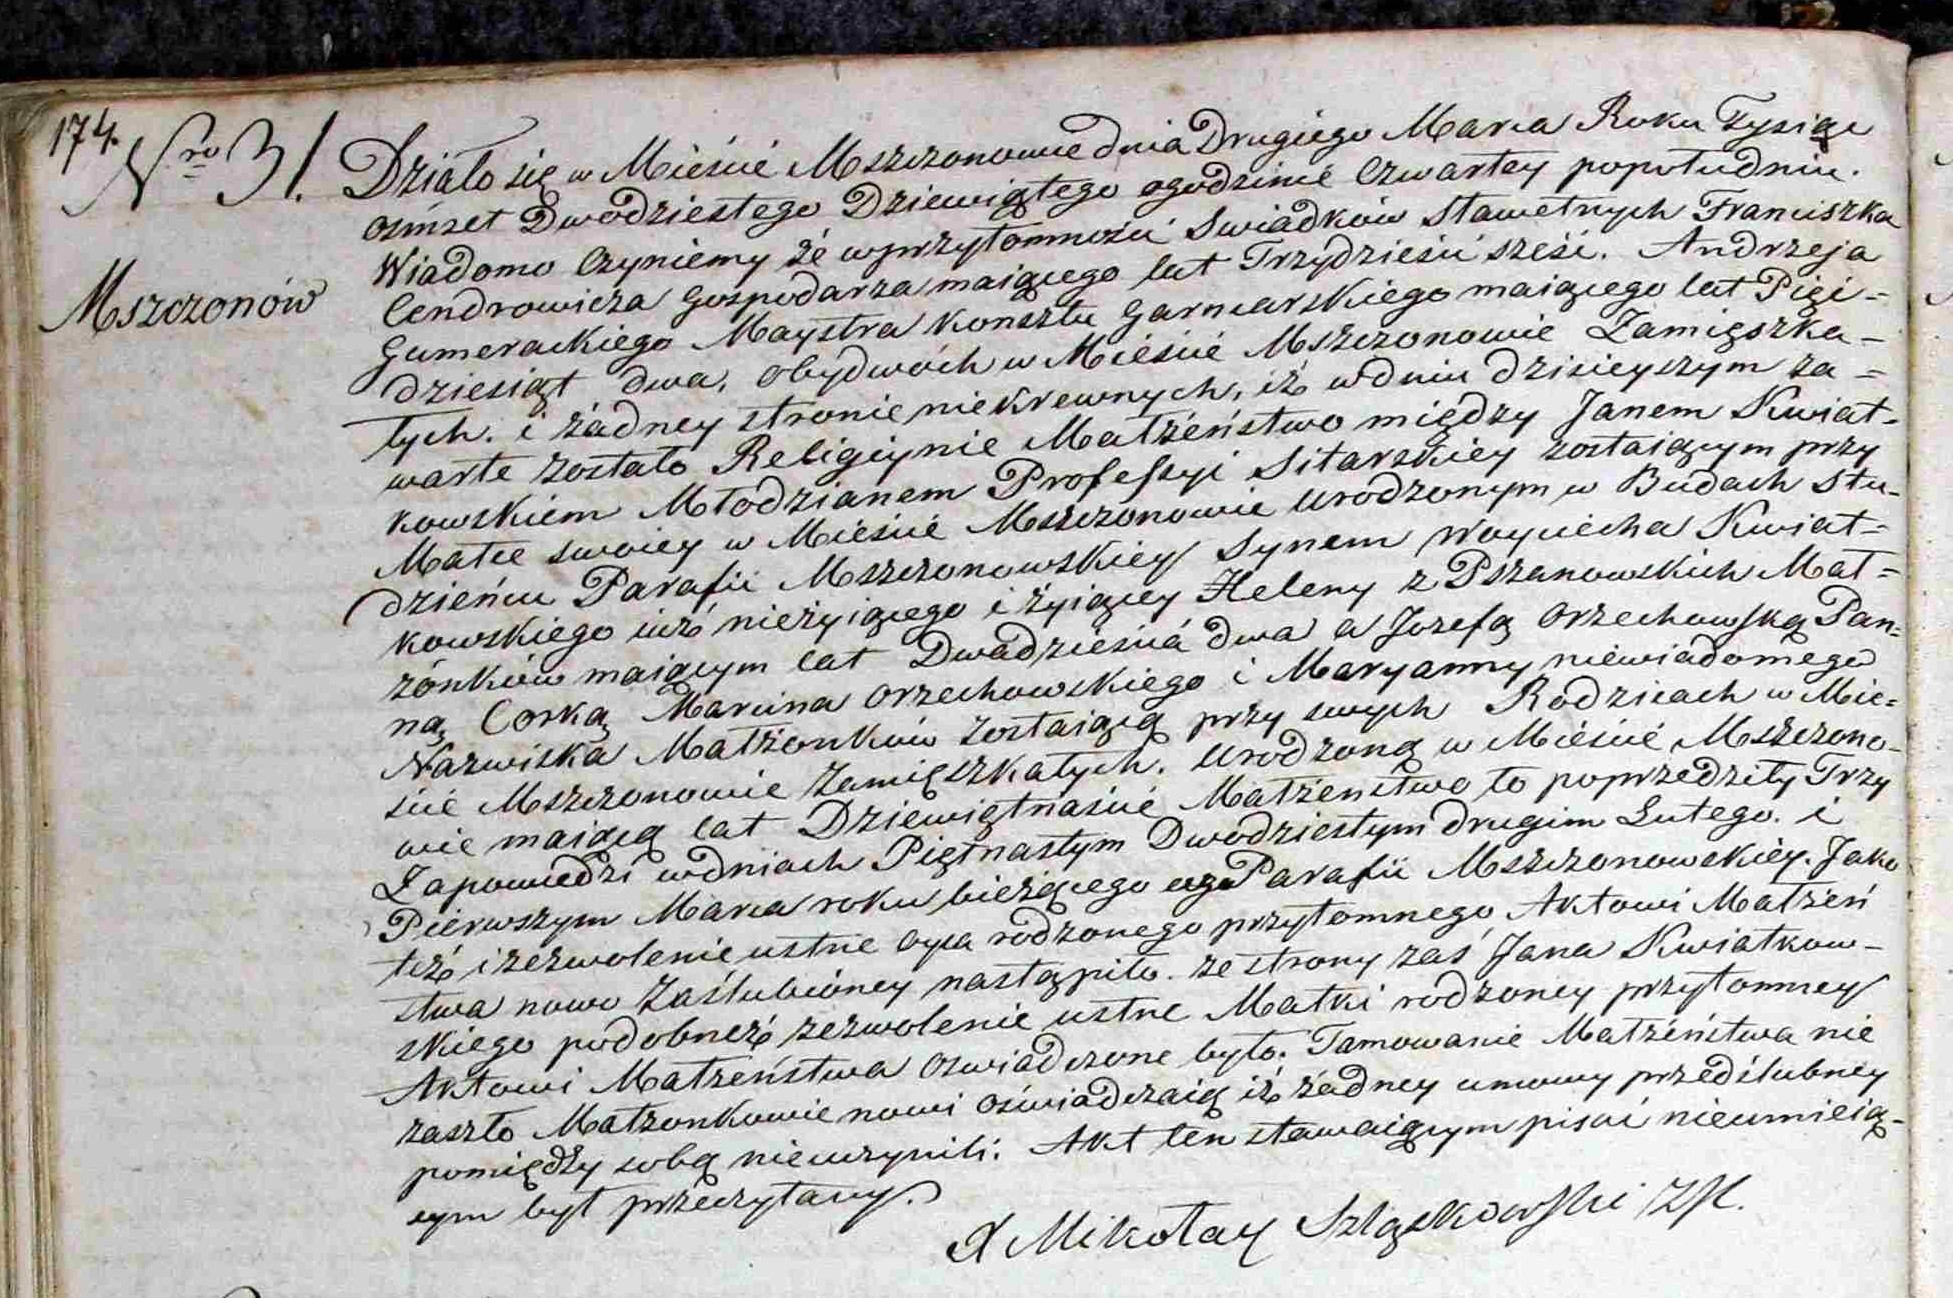 174.
Nro 31.
Mszczonów
Działo się w Mieście Mszczonowie dnia Drugiego Marca Roku Tysiąc
ośmset Dwódziestego Dziewiątego ogodzinie Czwartey popołudniu.
Wiadomo Czyniemy że wprzytomności Swiadków Sławetnych Franciszka
Cendrowicza Gospodarza maiącego lat Trzydzieści sześć. Andrzeja
Gumerackiego Maystra konsztu Garncarskiego maiącego lat Pięć=
dziesiąt dwa, obydwóch w Mieście Mszczonowie Zamięszka-
łych. i żadney stronie niekrewnych, iż wdniu dzisieyszym za=
warte zostało Religijnie Małżeństwo między Janem Kwiat-
kowskiem Młodzianem Professyi Sitarskiey zostaiącym przy
Matce swoiey w Mieście Mszczonowie urodzonym w Budach Stu-
dzieńcu Parafii Mszczonowskiey Synem Woyciecha Kwiat=
kowskiego iuż nieżyiącego i żyiącey Heleny z Pszanowskich Mał=
żónków maiącym lat Dwadzieścia dwa a Jozefą Orzechowską Pan=
ną Corką Marcina Orzechowskiego i Maryanny niewiadomego
Nazwiska Małżonków zostaiącą przy swych Rodzicach w Mie=
ście Mszczonowie Zamięszkałych. urodzoną w Mieście Mszczono-
wie maiącą lat Dziewiętnaście Małżeństwo to poprzedziły Trzy
Zapowiedzi wdniach Piętnastym Dwódziestym drugim Lutego. i
Pierwszym Marca roku bieżącego Parafii Mszczonowskiey. Jako
też i zezwolenie ustne oyca rodzonego przytomnego Aktowi Małżeń
stwa nowo Zaślubióney nastąpiło. ze strony zaś Jana Kwiatkow-
skiego podobneż zezwolenie ustne Matki rodzoney przytomney
Aktowi Małżeństwa oswiadczone było. Tamowanie Małżeństwa nie
zaszło Małżonkowie nowi oświadczaią iż żadney umowy przedślubney
pomiędzy sobą nieuczynili. Akt ten stawaiącym pisać nieumieią-
cym był przeczytany.
X Mikołay